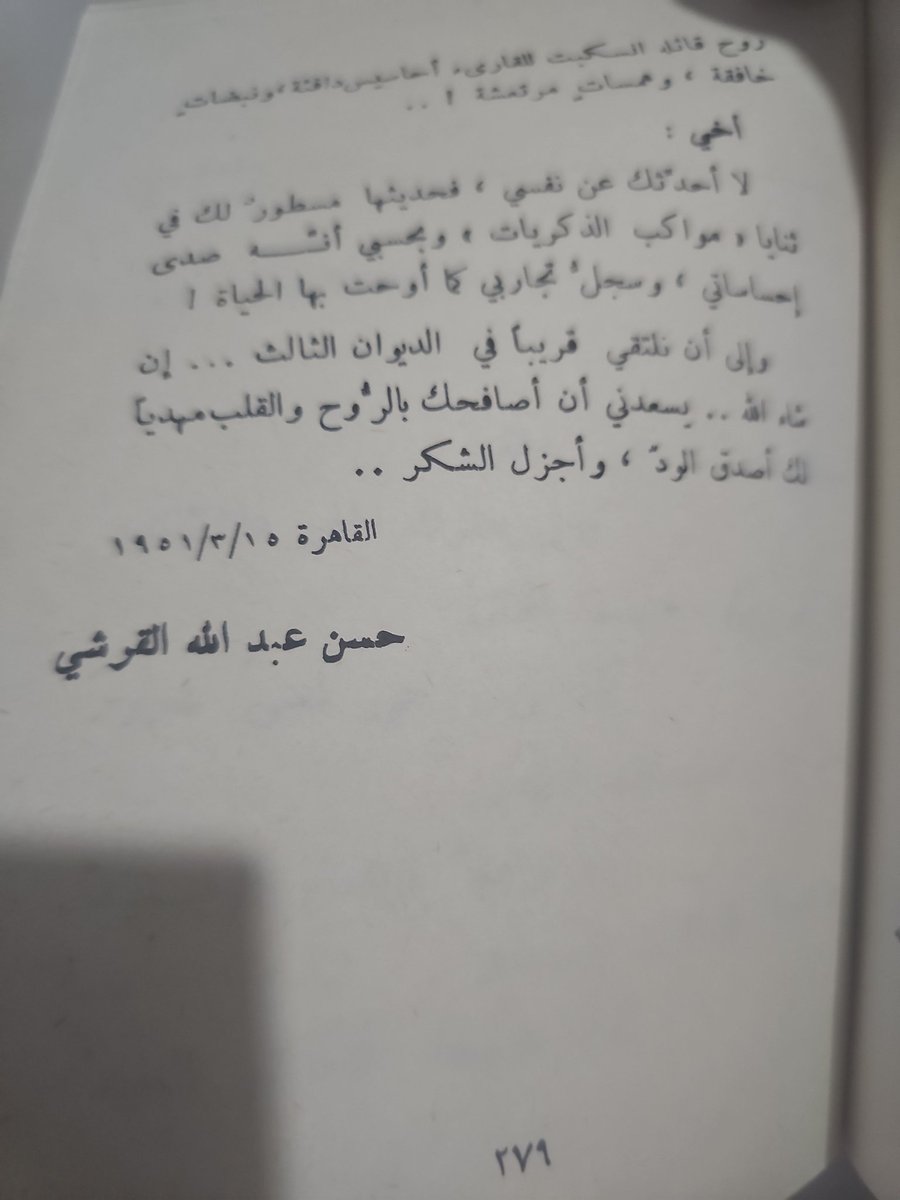 روح قائله انسكبت للقارىء أحاسيس دافئة ، ونبضات
خافقة ، وهمسات مرتعشة ! ..
أخي :
لا أحدّثك عن نفسي ، فحديثها مسطورٌ لك في
ثنايا « مواكب الذكريات » وبحسبي أنّه صدى
إحساساتي ، وسجلُّ تجاربي كما أوحت بها الحياة !
وإلى أن نلتقي قريباً في الديوان الثالث ... إن
شاء الله .. يسعدني أن أصافحك بالرُّوح والقلب مهدياً
لك أصدق الودّ ، وأجزل الشكر ..
القاهرة ١٥/٣/١٩٥١
حسن عبد الله القرشي
٢٧٩